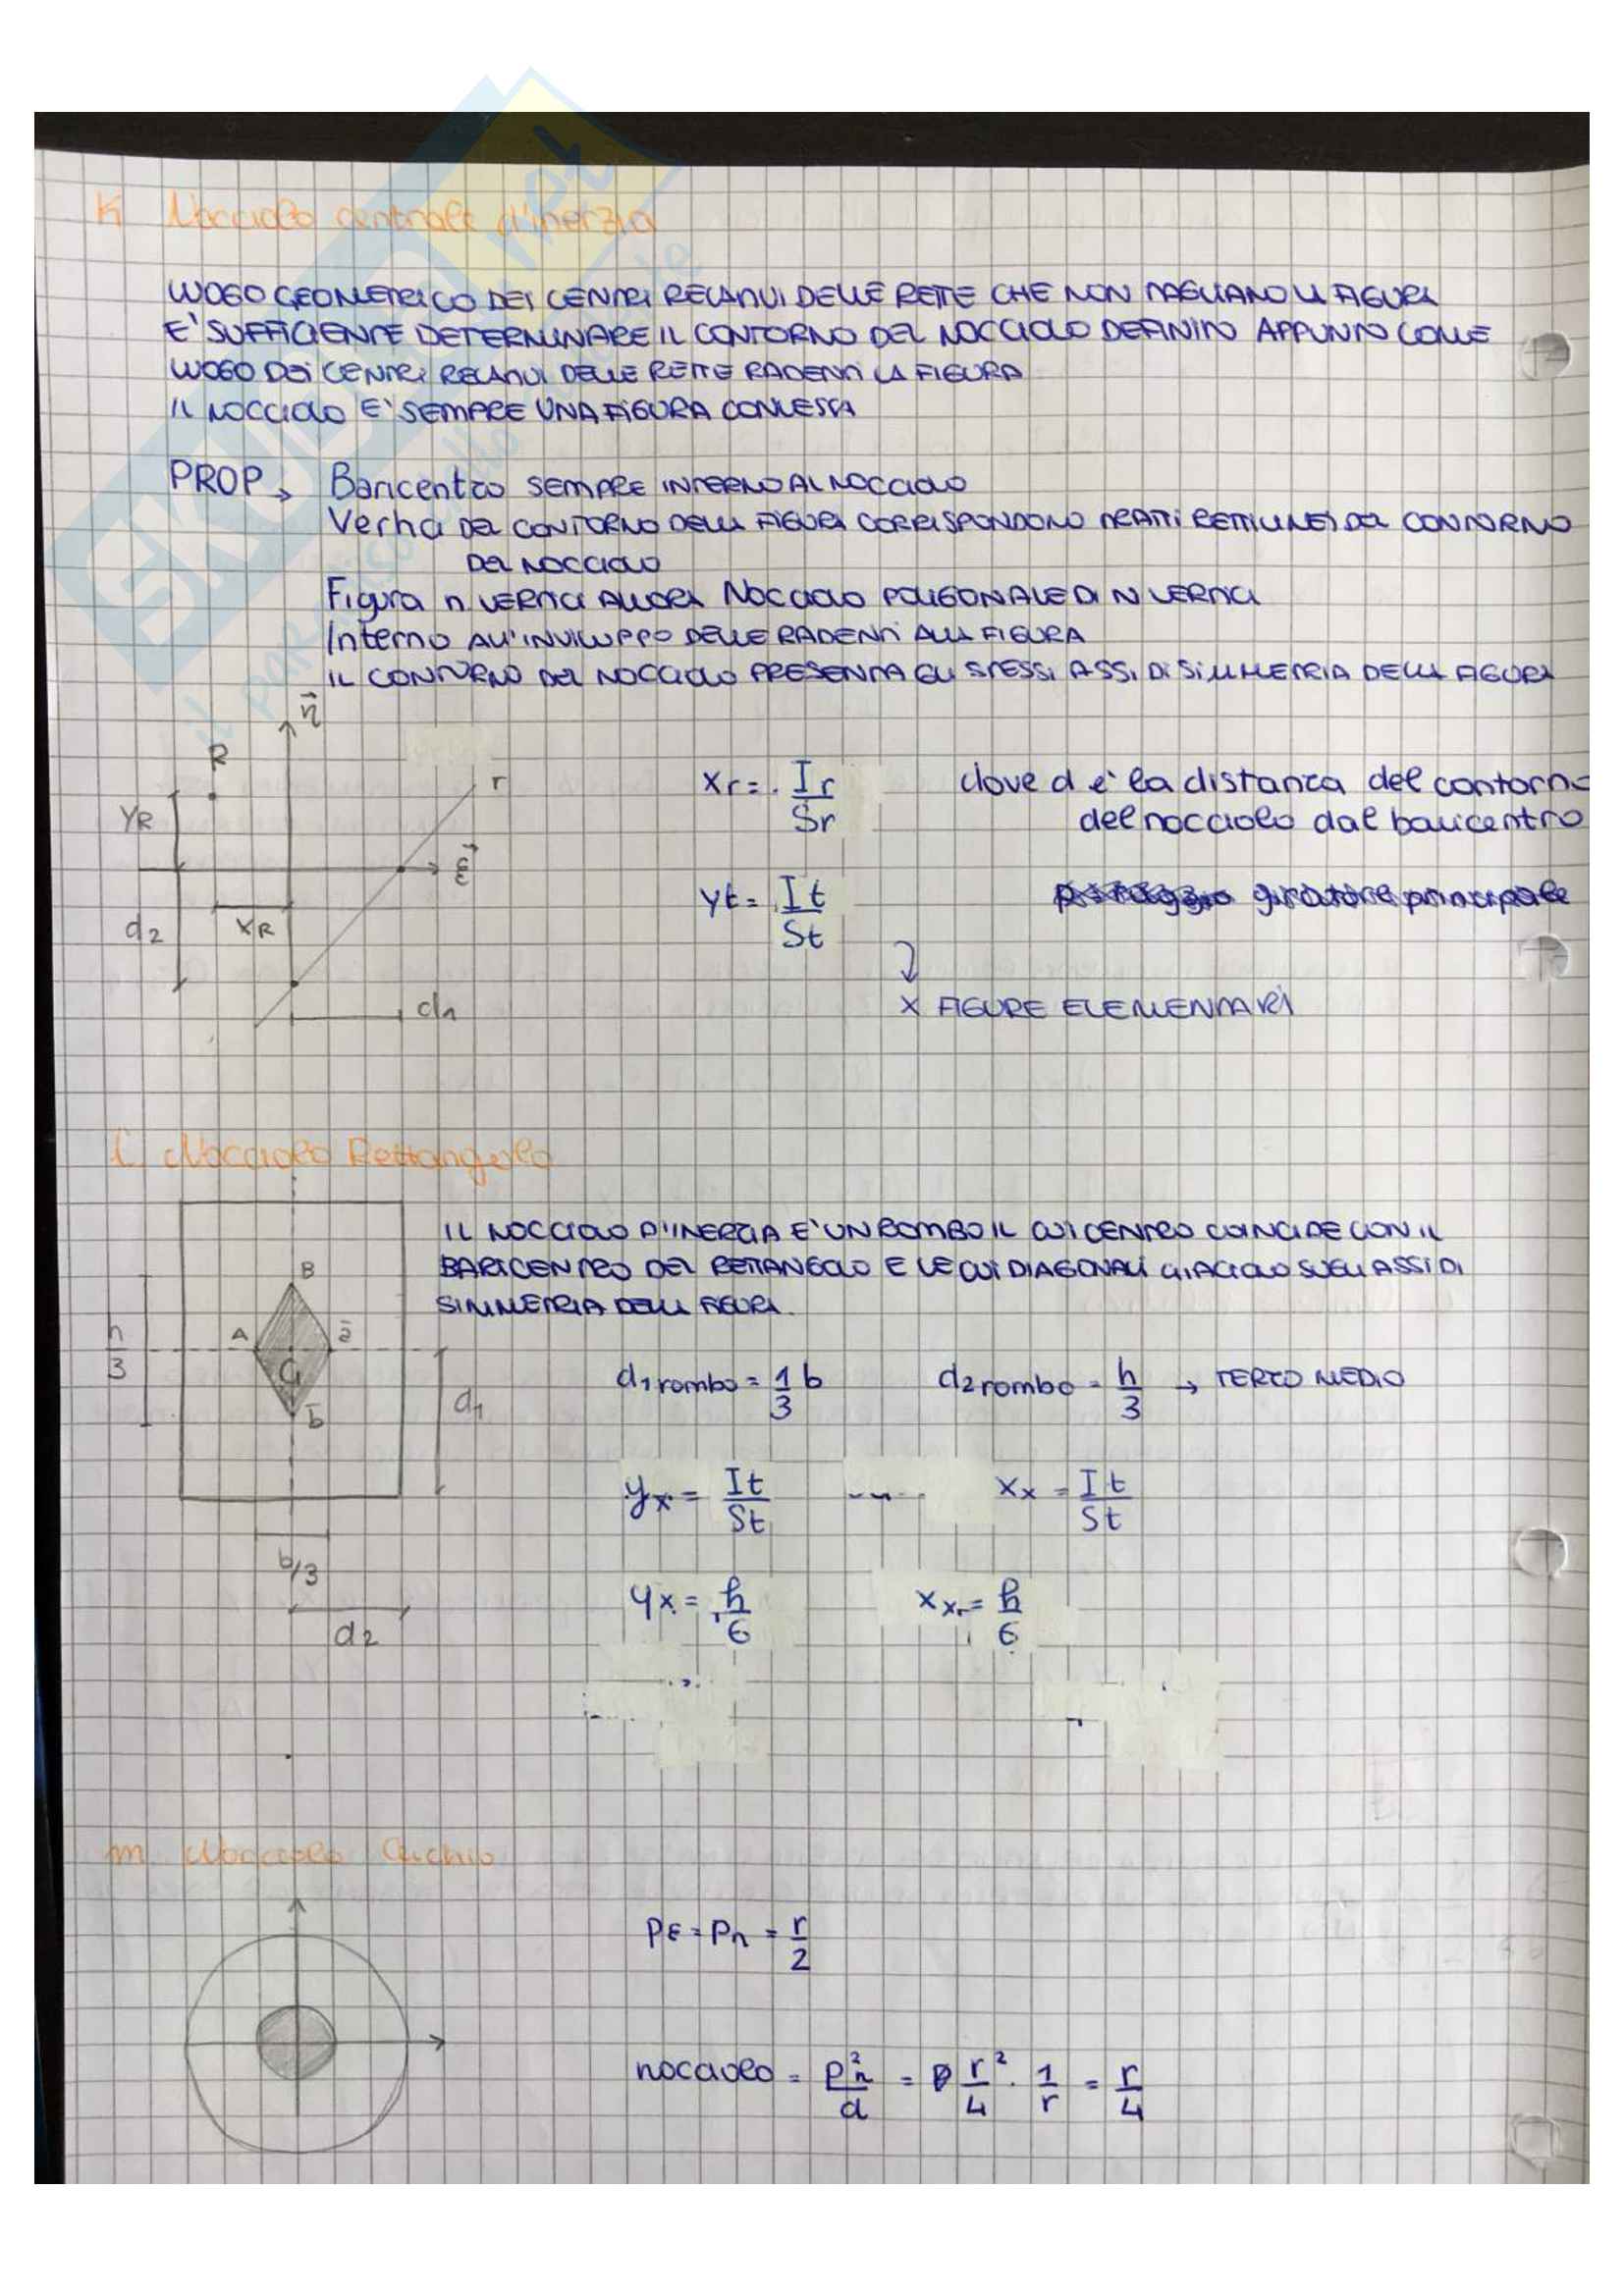 K Nocciolo centrale d'inerzia
LUOGO GEOMETRICO DEI CENTRI RELATIVI DELLE RETTE CHE NON TAGLIANO LA FIGURA
E' SUFFICIENTE DETERMINARE IL CONTORNO DEL NOCCIOLO DEFINITO APPUNTO COME
LUOGO DEI CENTRI RELATIVI DELLE RETTE RADENTI LA FIGURA
IL NOCCIOLO E' SEMPRE UNA FIGURA CONVESSA
PROP → Baricentro SEMPRE INTERNO AL NOCCIOLO
Vertici DEL CONTORNO DELLA FIGURA CORRISPONDONO TRATTI RETTILINEI DEL CONTORNO
DEL NOCCIOLO
Figura n VERTICI ALLORA NOCCIOLO POLIGONALE DI N VERTICI
Interno ALL'INVILUPPO DELLE RADENTI ALLA FIGURA
IL CONTORNO DEL NOCCIOLO PRESENTA GLI STESSI ASSI DI SIMMETRIA DELLA FIGURA
η
R
r
YR
ξ
d2
XR
d1
xr = Ir/Sr
dove d e' la distanza del contorno
del nocciolo dal baricentro
yt = It/St
giratore principale
X FIGURE ELEMENTARI
L Nocciolo Rettangolo
IL NOCCIOLO D'INERZIA E' UN ROMBO IL CUI CENTRO COINCIDE CON IL
BARICENTRO DEL RETTANGOLO E LE CUI DIAGONALI GIACIONO SUGLI ASSI DI
SIMMETRIA DELLA FIGURA.
B
A
a
G
b
h/3
d1
b/3
d2
d1 rombo = 1/3 b
d2 rombo = h/3 → TERZO MEDIO
yx = It/St
xx = It/St
yx = h/6
xx = h/6
m Nocciolo Cerchio
ρε = ρn = r/2
nocciolo = ρ²n/d = r²/4 · 1/r = r/4